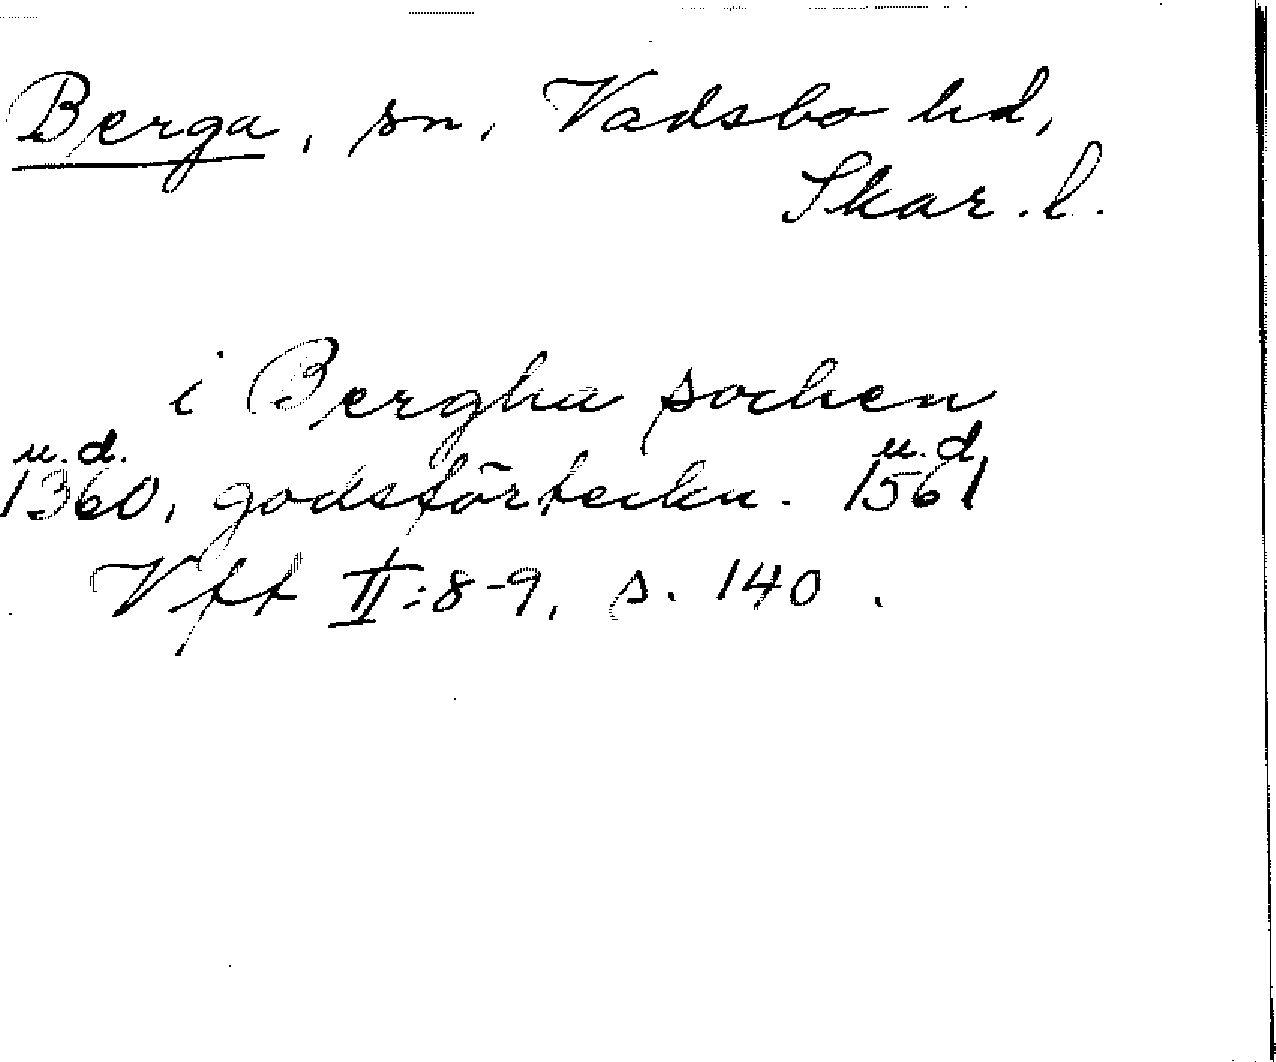 Berga, sn, Vadsbo hd,
Skar. l.
i Bergha sochen
u.d. u.d.
1360, godsförteckn. 1561
Vft II:8-9, s. 140.